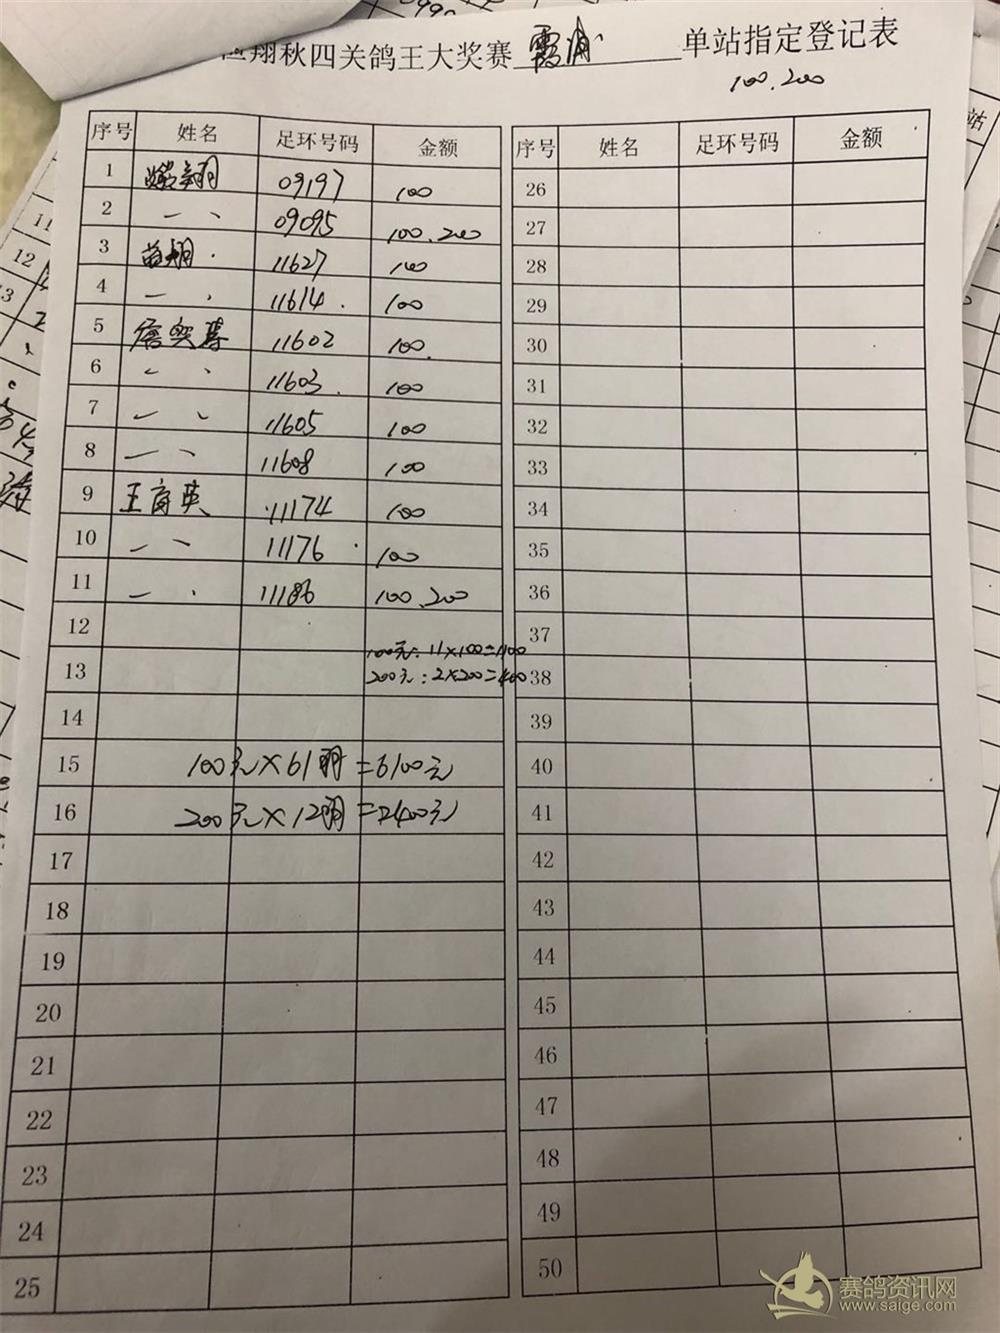 翔秋四关鸽王大奖赛 霞浦 单站指定登记表
100.200
序号 姓名 足环号码 金额 序号 姓名 足环号码 金额
1 09197 100 26
2 〃 09095 100.200 27
3 11627 100 28
4 〃 11614 100 29
5 11602 100 30
6 〃 11603 100 31
7 〃 11605 100 32
8 〃 11608 100 33
9 王育英 11174 100 34
10 〃 11176 100 35
11 〃 11186 100.200 36
12 37
100元:11×100=1100
13 200元:2×200=400 38
14 39
15 100元×61羽=6100元 40
16 200元×12羽=2400元 41
17 42
18 43
19 44
20 45
21 46
22 47
23 48
24 49
25 50
赛鸽资讯网
www.saige.com